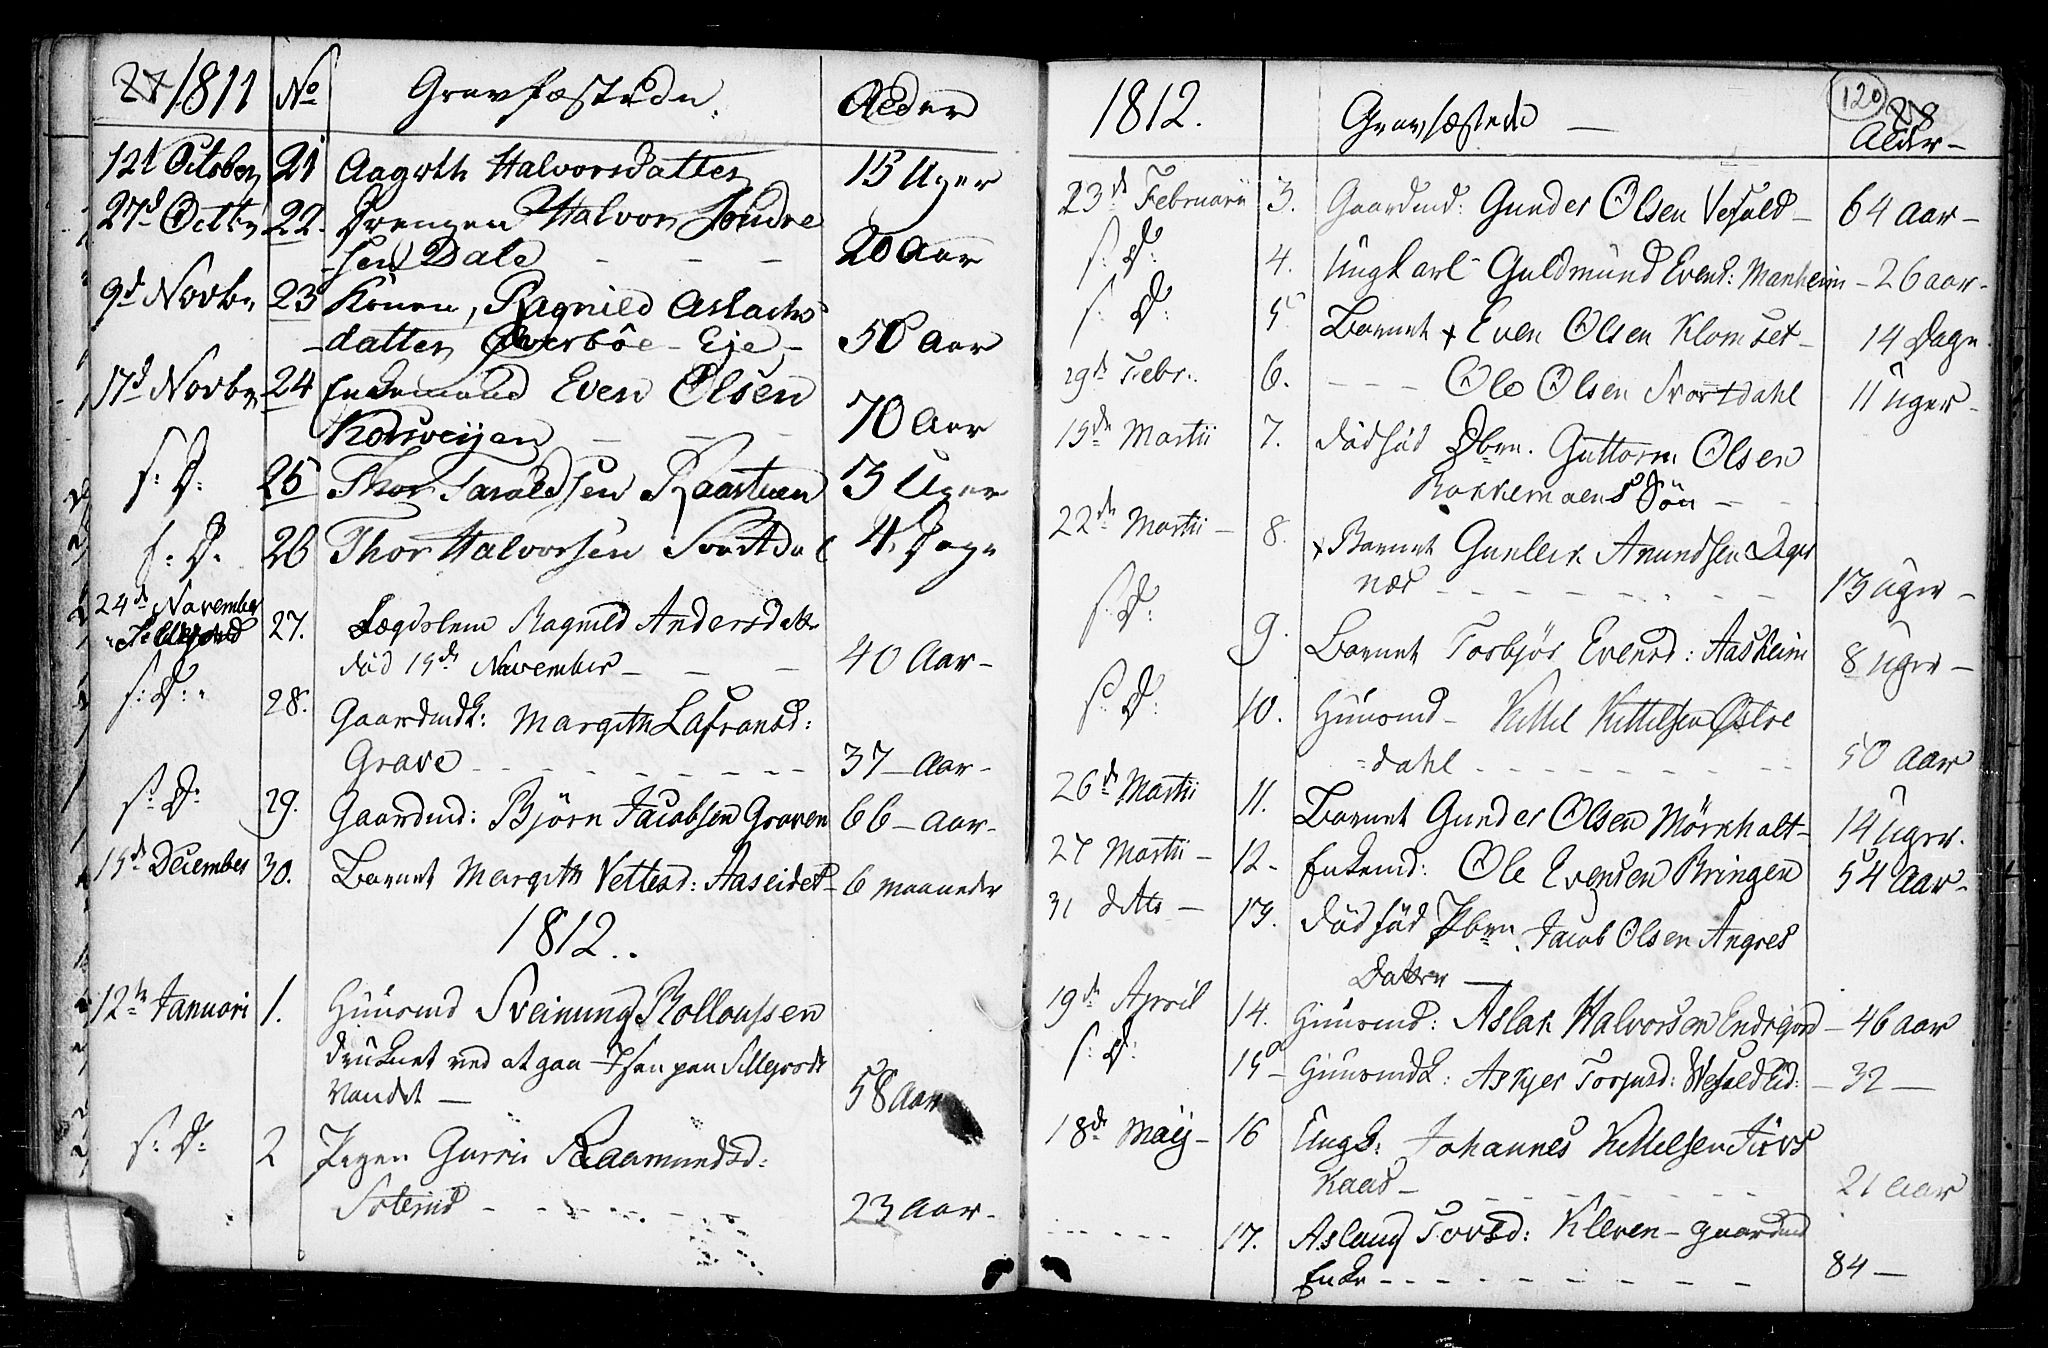 27 1811 No Gravfæstede. Alder
12t October 21 Aagoth Halvorsdatter 15 Uger
27d Octbr 22. Drengen Halvor Sondre
-sen Dale - - - 20 Aar
9d Novbr 23 Konen, Ragnild Aslachs
-datter Øverböe - Eje - 50 Aar
17d Novbr 24 Enkemand Even Olsen
- - - 70 Aar
s: D: 25 Thor Taraldsen Raastuen 3 Uger
s: D: 26 Thor Halvorsen Svartdal 4 Dage
24de November 27. Lægdslem Ragnild Andersdattr
Selliegord död 15de November - - - 40 Aar-
s: D: 28. Gaardmdk: Margith Lafransd:
Grave - - - - - - - - 37 - Aar-
s: D: 29. Gaardmd: Björn Jacobsen Graven 66 - Aar-
15d December 30. Barnet Margith Vettesd: Aaseidet - 6 maaneder
1812..
12te Januari 1. Huusmd Sveinung Rolloufsen
druknet ved at gaa - Isen paa Sillegjords
Vandet - 58 Aar
s: D: 2 Pigen Gurri Raamundsd:
- - - - - - - 23 Aar-
1812. Gravfæstede - 120 28
Alder-
23de Februarii 3. Gaardmd: Gunder Olsen Vefald - 64 Aar-
s: D: 4. Ungkarl - Guldmund Evens: Manheim - 26 aar-
s: D: 5 Barnet x Even Olsen Klomset - 14 Dage
29de Febr. 6. - - - Ole Olsen Svartdahl 11 Uger-
15de Martii 7. dödföd Dbrn. Guttorm Olsen
Sön - -
22de Martii - 8. x Barnet Gunleik Amundsen Dager
næs - - - - - - - - 13 Uger -
s: D: 9. Barnet Torbjör Evensd: Aasheim 8 Uger -
s: D: 10. Huusmd - Kittel Kittelsen Østre
=dahl - - - - - - - - 50 Aar
26de Martii 11. Barnet Gunder Olsen Mörkhalt - 14 Uger.
27 Martii - 12 - Enkemd: Ole Evensen Bringen 54 Aar-
31 ditto - 13. dödföd Pbrn Jacob Olsen Angres
Datter -
19de April 14. Huusmd: Aslak Halvorsen Endegord - 46 aar
s: D: 15 - Huusmdk: Askjer Torjusd: Vefaldlid: - 32 -
18de Maij - 16 Ungk: Johannes Kittelsen
Kaas - - - - - - - - 21 aar
- - - - - 17. Aslaug Tovsd: Kleven - gaardmd
Enke - - - - - - - - - 84 -